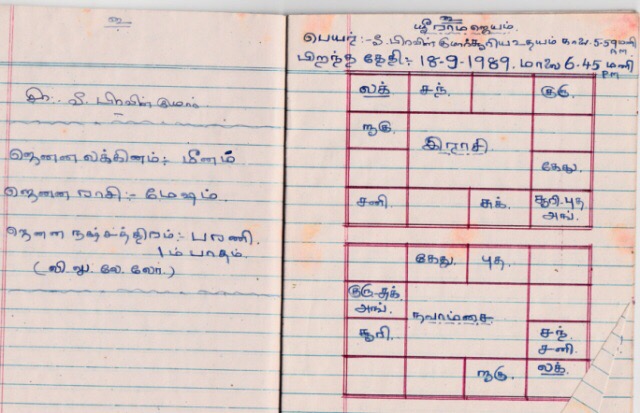 உ
திரு. வீ. பிரவின் குமார்
ஜெனன லக்கினம்:- மீனம்
ஜெனன ராசி:- மேஷம்
ஜெனன நஷ்சத்திரம்:- பரணி.
1ம் பாதம்.
(லி. லு. லே. லோ.)
உ
ஸ்ரீ ராம ஜெயம்.
பெயர்:- வீ. பிரவின் குமார் சூரிய உதயம் காலை 5-59 மணி
பிறந்த தேதி:- 18-9-1989. மாலை 6.45 மணி
PM
லக் சந் குரு
ராகு
இராசி
கேது
சனி சுக். சூரி. புத
அங்.
கேது. புத
குரு-சுக்
அங்.
நவாம்சை
சூரி. சந்
சனி.
ராகு. லக்